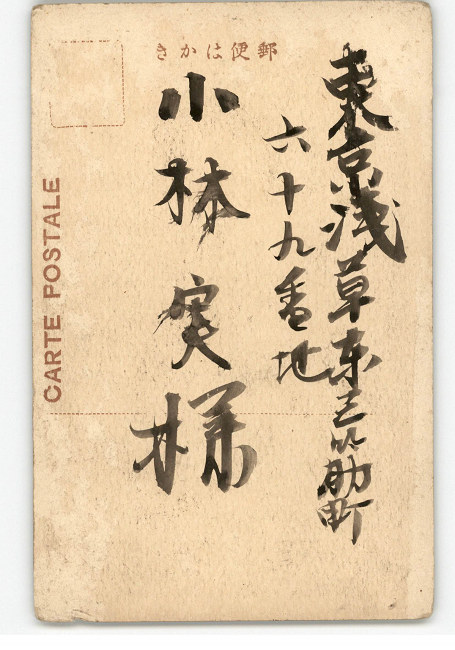 郵便はかき
東京浅草東三筋町
六十九番地
小林実様
CARTE POSTALE